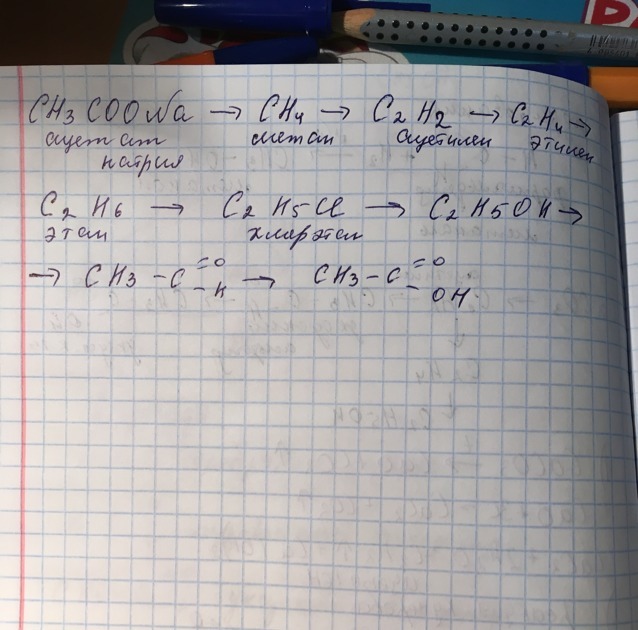 CH3COONa → CH4 → C2H2 → C2H4 →
ацетат метан ацетилен этилен
натрия
C2H6 → C2H5-Cl → C2H5OH →
этан хлорэтан
→ CH3-C=O-H → CH3-C=O-OH